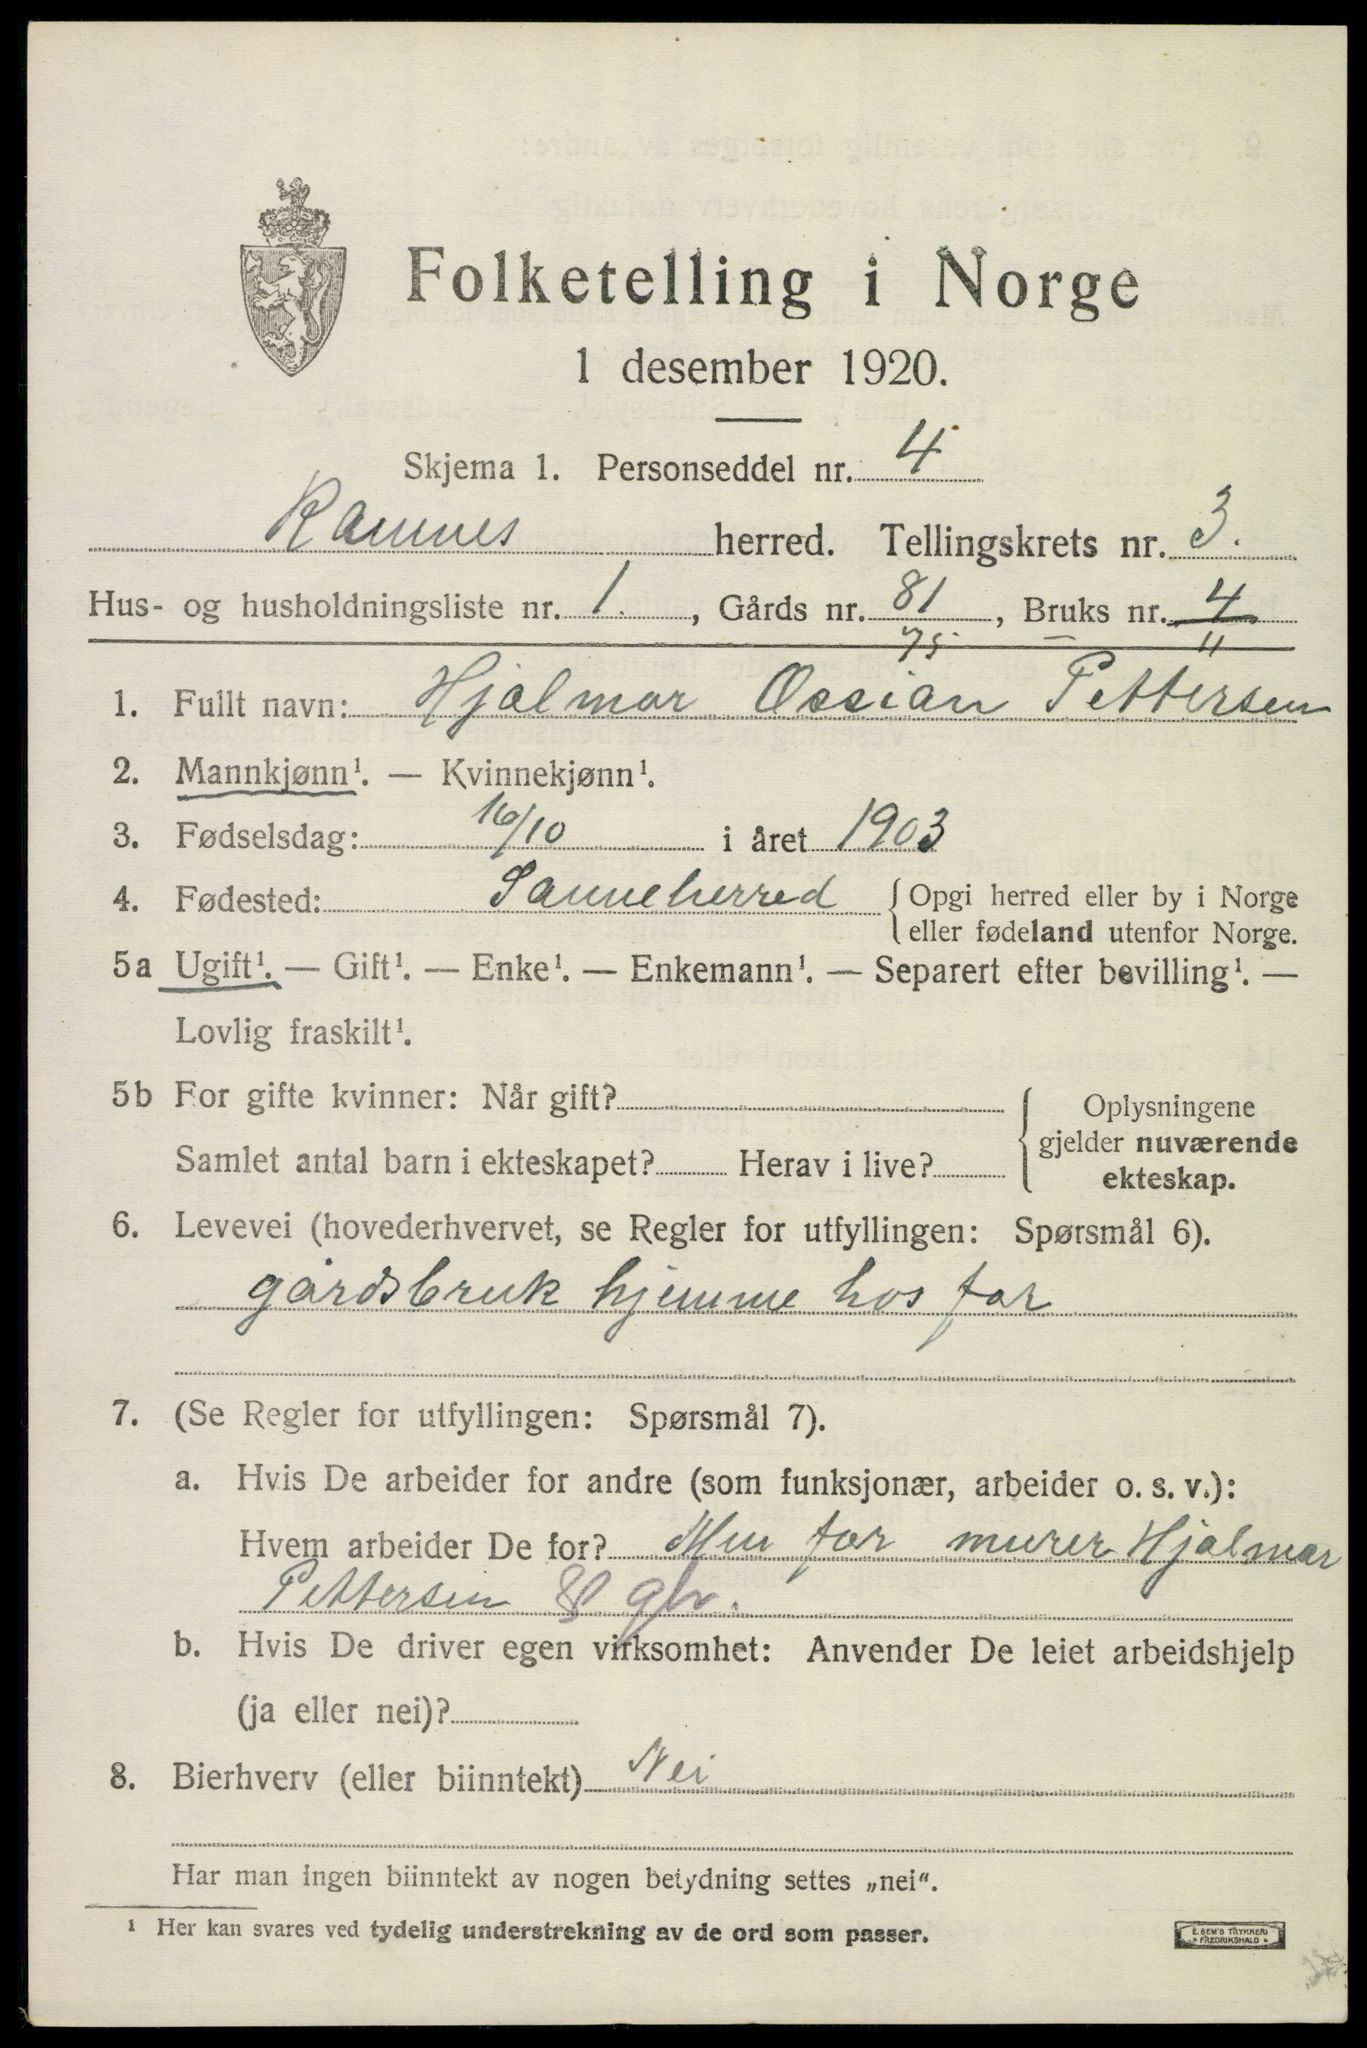 Folketelling i Norge
1 desember 1920.
Skjema 1. Personseddel nr. 4
Ramnes herred. Tellingskrets nr. 3.
Hus- og husholdningsliste nr. 1. , Gårds nr. 81 , Bruks nr. 4
75 11
1. Fullt navn: Hjalmar Ossian Pettersen
2. Mannkjønn¹. — Kvinnekjønn¹.
3. Fødselsdag: 16/10 i året 1903
4. Fødested: Sanneherred { Opgi herred eller by i Norge
eller fødeland utenfor Norge.
5a Ugift¹. — Gift¹. — Enke¹. — Enkemann¹. — Separert efter bevilling¹. —
Lovlig fraskilt¹.
5b For gifte kvinner: Når gift?
Samlet antal barn i ekteskapet? Herav i live?
{ Oplysningene
gjelder nuværende
ekteskap.
6. Levevei (hovederhvervet, se Regler for utfyllingen: Spørsmål 6).
gårdsbruk hjemme hos far
7. (Se Regler for utfyllingen: Spørsmål 7).
a. Hvis De arbeider for andre (som funksjonær, arbeider o. s. v.):
Hvem arbeider De for? Min far murer Hjalmar
Pettersen
b. Hvis De driver egen virksomhet: Anvender De leiet arbeidshjelp
(ja eller nei)?
8. Bierhverv (eller biinntekt) Nei
Har man ingen biinntekt av nogen betydning settes „nei“.
¹ Her kan svares ved tydelig understrekning av de ord som passer.
E. SEM'S TRYKKERI
FREDRIKSHALD